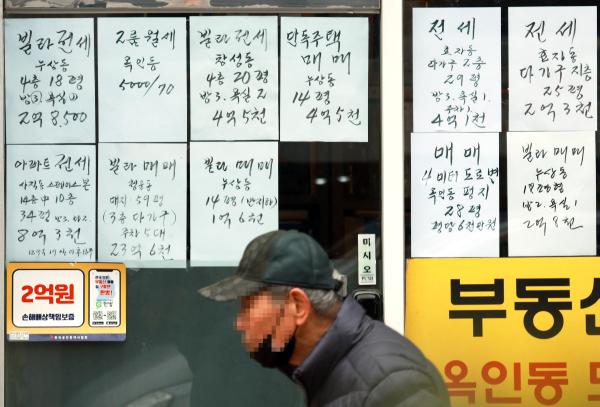 빌라 전세
누상동
4층 18평
방③. 욕실①
2억 8,500
2룸 월세
옥인동
5000/70
빌라 전세
창성동
4층 20평
방3. 욕실 2
4억 5천
단독주택
매매
누상동
14평
4억 5천
전세
효자동
다가구 2층
29평
방3. 욕실1.
주차1
4억 1천
전세
효자동
다가구 지층
25평
2억 3천
아파트 전세
사직동 스페이스본
14층 中 10층
34평
8억 3천
빌라 매매
청운동
대지 59평
(3층 다가구)
주차 5대
23억 6천
빌라 매매
누상동
14평 (반지하)
1억 6천
매매
4미터 도로변
옥인동 평지
28평
평당 6천만천
빌라 매매
누상동
18평형
방2. 욕실1
2억 8천
미시오
2억원
손해배상책임보증
부동산
옥인동